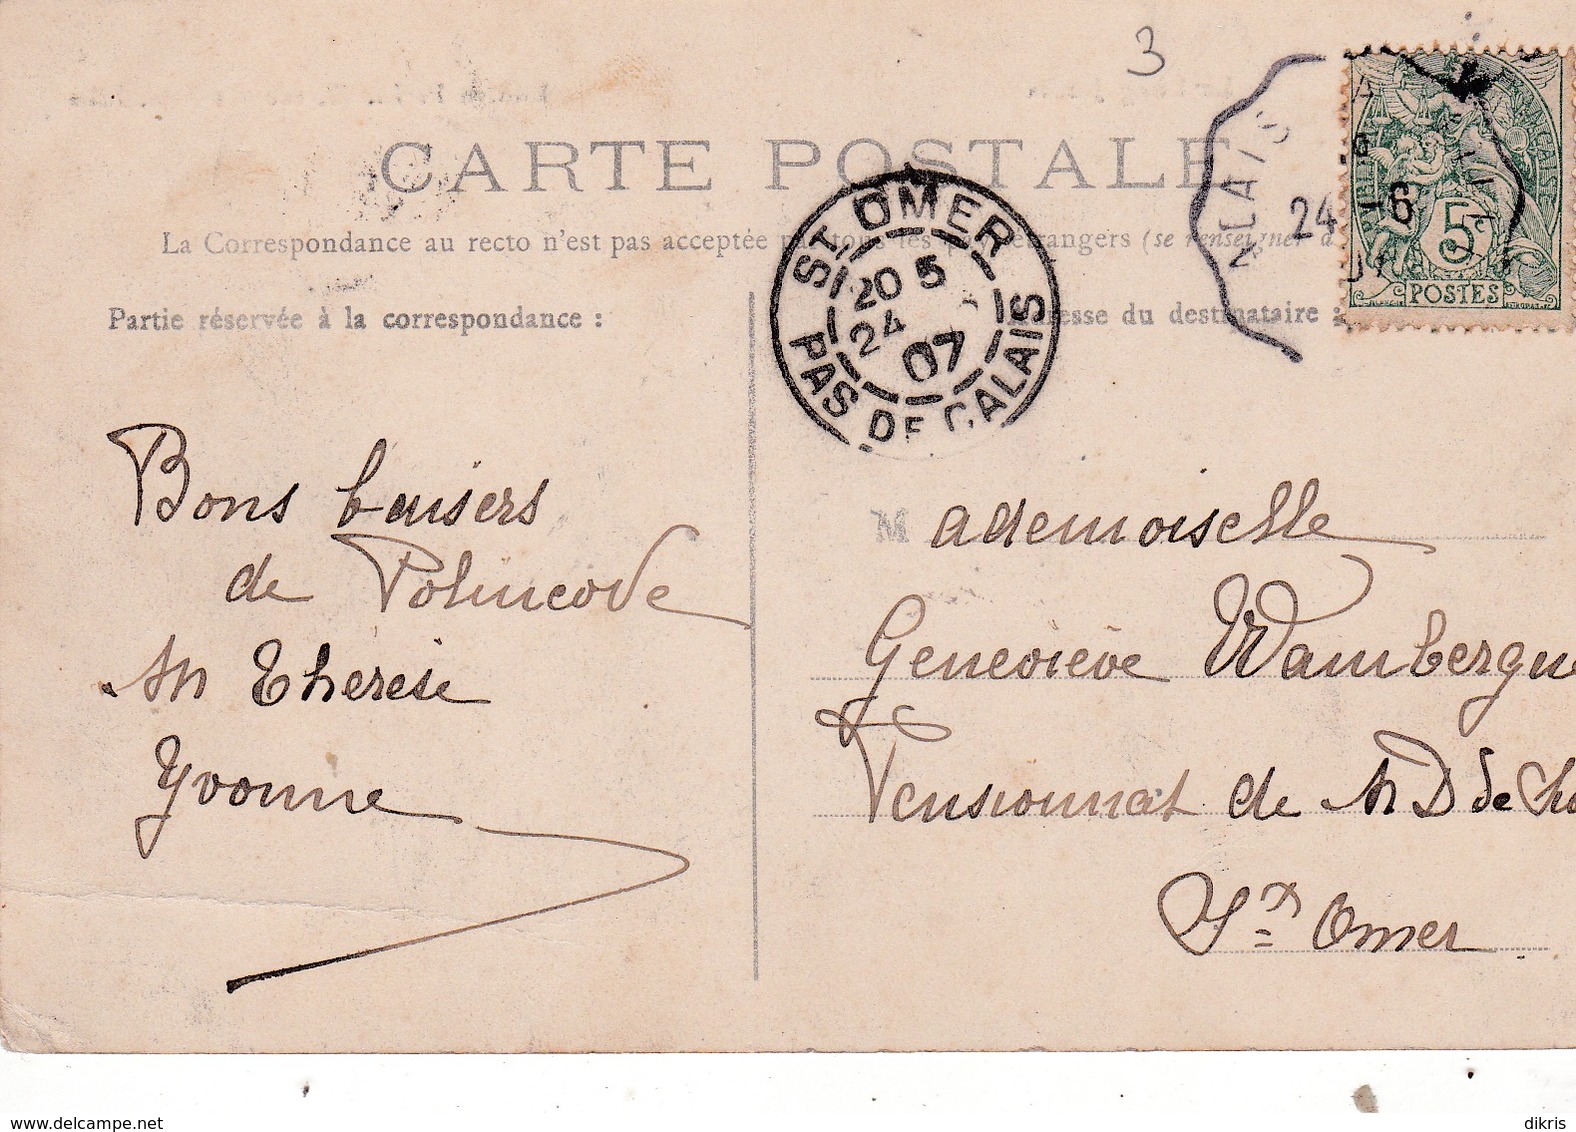 3
CARTE POSTALE
La Correspondance au recto n'est pas acceptée par tous les pays étrangers (se renseigner à
Partie réservée à la correspondance :
Adresse du destinataire :
ST OMER
20 5
24
07
PAS-DE-CALAIS
CALAIS
24 -6
07
FRANÇAISE
5c
POSTES
Bons baisers
de Polincove
M Thérèse
Yvonne
Mademoiselle
Geneviève Wambergue
Pensionnat de N D de
St Omer
www.delcampe.net
dikris